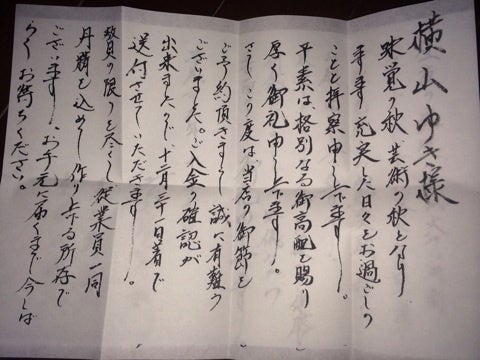 横山ゆき様
味覚の秋 芸術の秋となり
ますます充実した日々をお過ごしの
ことと拝察申し上下ます。
平素は格別なる御高配を賜り
厚く御礼申し上下ます。
さて、この度は当店の御節を
ご予約頂きまして誠に有難う
ございました。ご入金の確認が
出来ましたので十二月三十一日着で
送付させていただきます。
最員の限りを尽くし従業員一同
丹精を込めて作り上げる所存で
ございます。お手元に届くまで今しば
らくお待ちください。